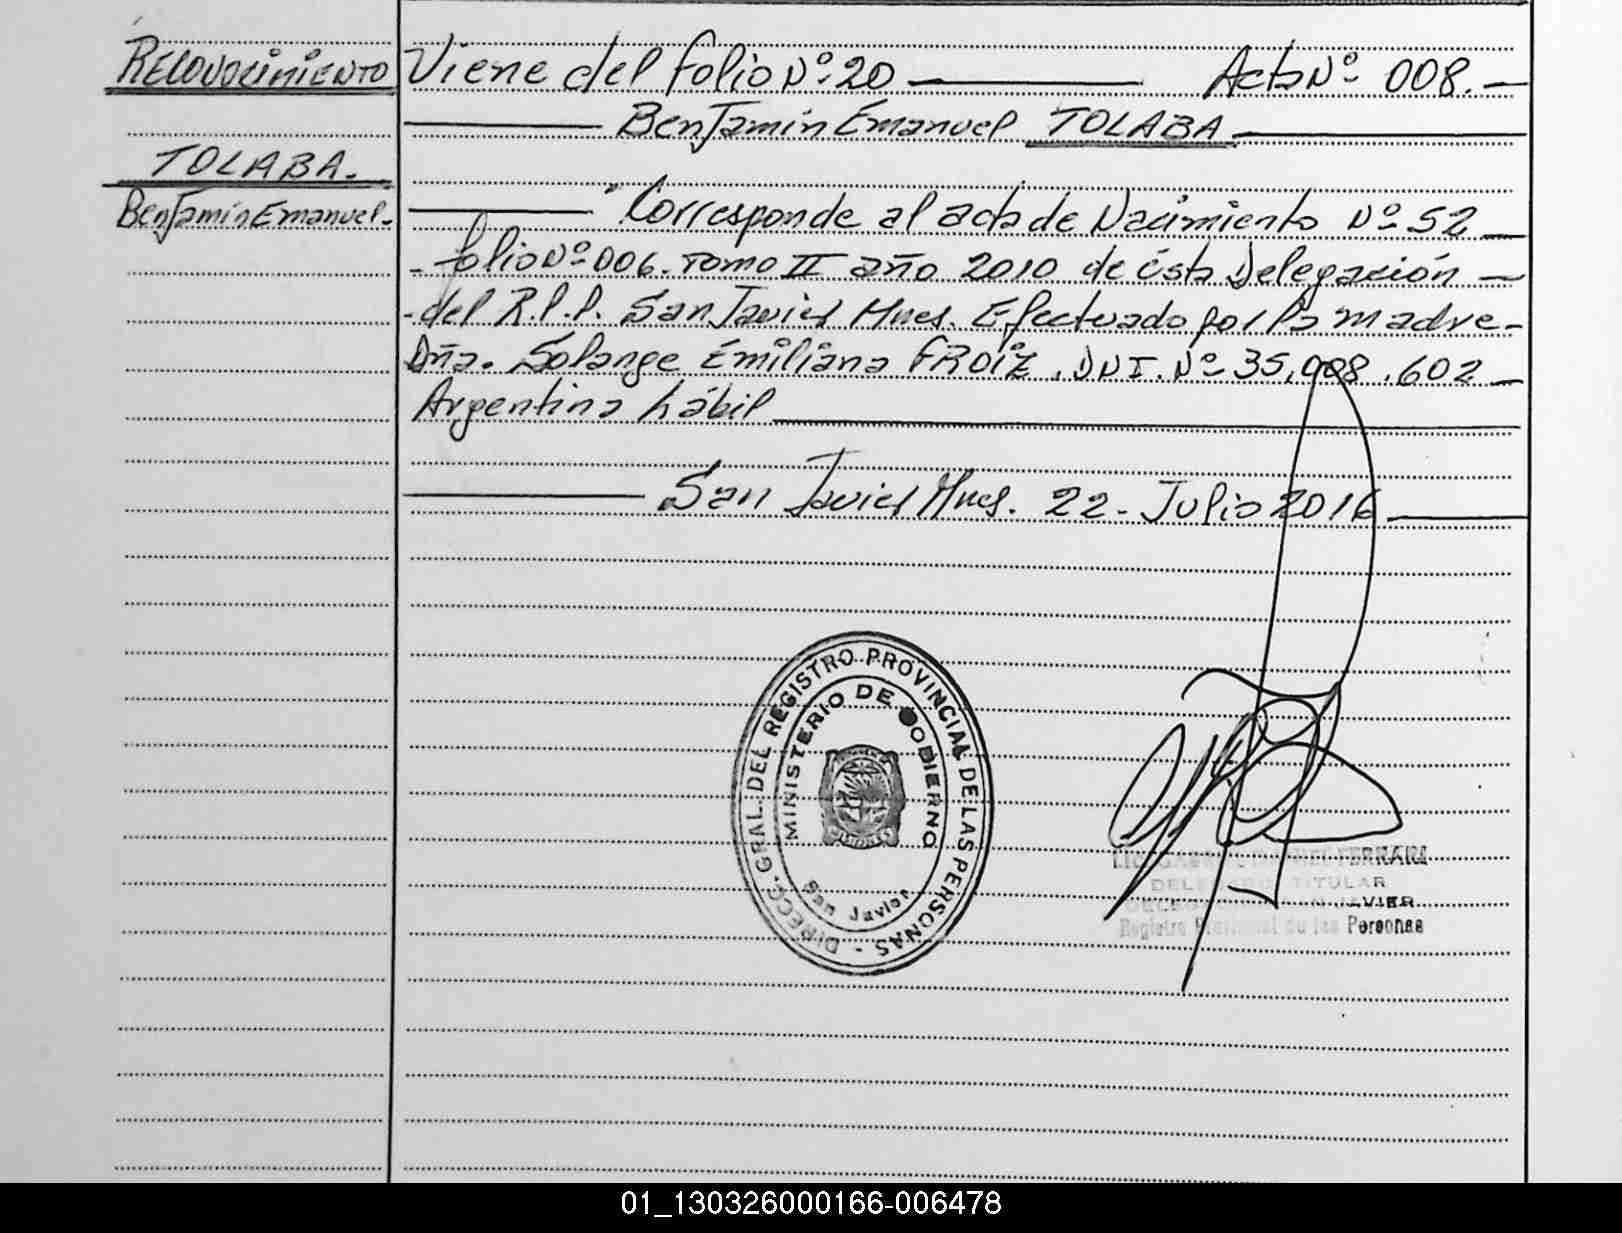 Reconocimiento
TOLABA.
Benjamín Emanuel.
Viene del folio Nº 20 Acta Nº 008.
Benjamín Emanuel TOLABA
Corresponde al acta de Nacimiento Nº 52
folio Nº 006. Tomo II año 2010 de ésta Delegación
del R.P.P. San Javier Mnes. Efectuado por la madre
Dña. Solange Emiliana FROIZ. DNI. Nº 35.008.602
Argentina hábil
San Javier Mnes. 22 - Julio 2016
DIRECC. GRAL. DEL REGISTRO PROVINCIAL DE LAS PERSONAS -
MINISTERIO DE GOBIERNO
San Javier
FERRARI
TITULAR
JAVIER
Registro Provincial de las Personas
01_130326000166-006478